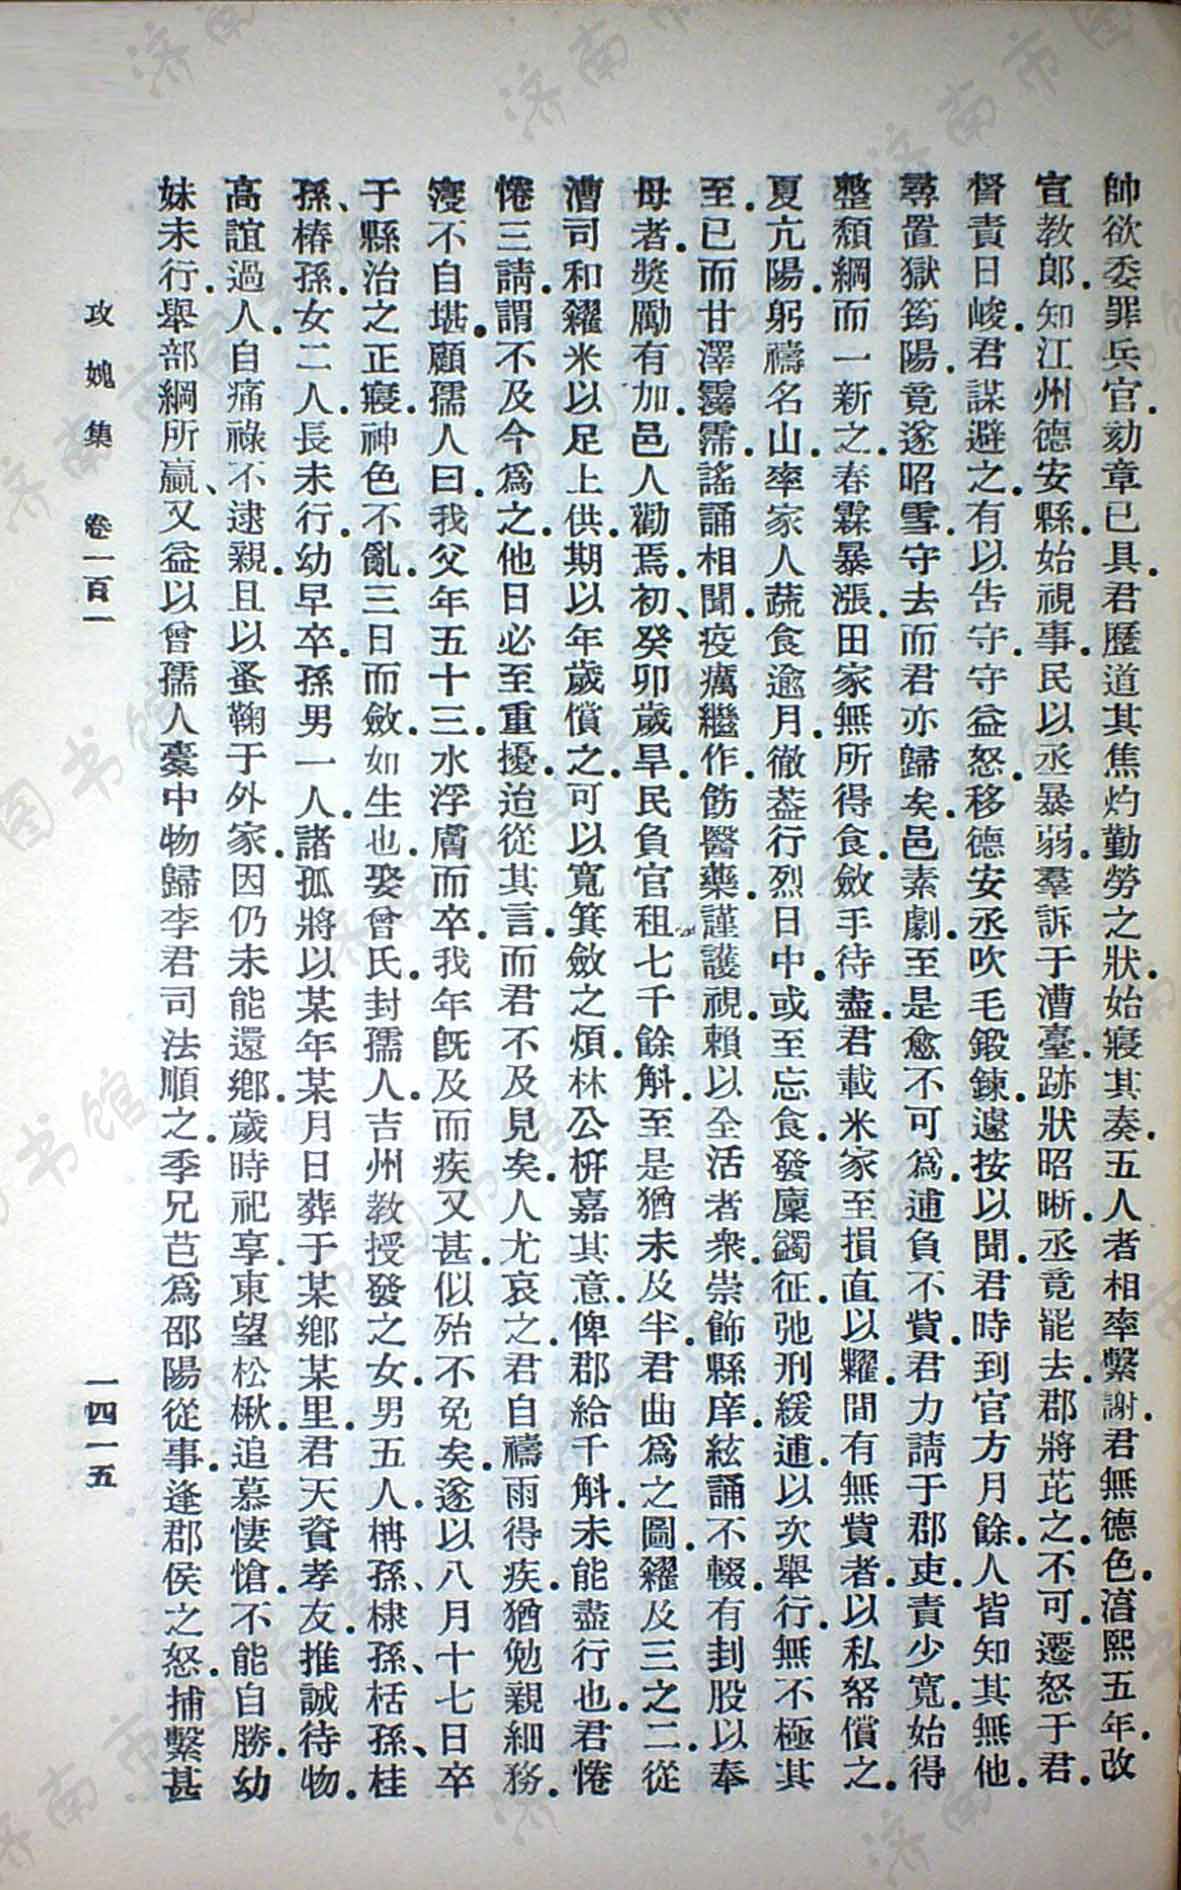 帥欲委罪兵官.劾章已具.君歷道其焦灼勤勞之狀.始寢其奏.五人者相率繫謝.君無德色.㴞熙五年.改
宣教郎.知江州德安縣.始視事.民以丞暴弱.羣訴于漕臺.跡狀昭晰.丞竟罷去.郡將芘之.不可.遷怒于君.
督責日峻.君謀避之.有以告守.守益怒.移德安丞吹毛鍛鍊.遽按以聞.君時到官方月餘.人皆知其無他.
尋置獄筠陽.竟遂昭雪.守去而君亦歸矣.邑素劇.至是愈不可爲.逋負不貲.君力請于郡.吏責少寬.始得
整頹綱而一新之.春霖暴漲.田家無所得食.斂手待盡.君載米家至.損直以糶.間有無貲者.以私帑償之.
夏亢陽.躬禱名山.率家人蔬食逾月.徹葢行烈日中.或至忘食.發廩蠲征.弛刑緩逋.以次舉行.無不極其
至.已而甘澤霧霈.謠誦相聞.疫癘繼作.飭醫藥.謹護視.賴以全活者衆.崇飾縣庠.絃誦不輟.有刲股以奉
母者.獎勵有加.邑人勸焉.初、癸卯歲旱.民負官租七千餘斛.至是猶未及半.君曲爲之圖.糴及三之二.從
漕司和糴米以足上供.期以年歲償之.可以寬箕斂之煩.林公枅嘉其意.俾郡給千斛.未能盡行也.君惓
惓三請.謂不及今爲之.他日必至重擾.迨從其言.而君不及見矣.人尤哀之.君自禱雨得疾.猶勉親細務.
寖不自堪.顧孺人曰.我父年五十三.水浮膚而卒.我年旣及而疾又甚.似殆不免矣.遂以八月十七日卒
于縣治之正寢.神色不亂.三日而斂.如生也.娶曾氏.封孺人.吉州教授發之女.男五人.柟孫、棣孫、栝孫、桂
孫、椿孫.女二人.長未行.幼早卒.孫男一人.諸孤將以某年某月日葬于某鄉某里.君天資孝友.推誠待物.
高誼過人.自痛祿不逮親.且以蚤鞠于外家.因仍未能還鄉.歲時祀享.東望松楸.追慕悽愴.不能自勝.幼
妹未行.舉部綱所贏、又益以曾孺人橐中物歸李君司法順之.季兄芑爲邵陽從事.逢郡侯之怒.捕繫甚
攻媿集 卷一百一 一四一五